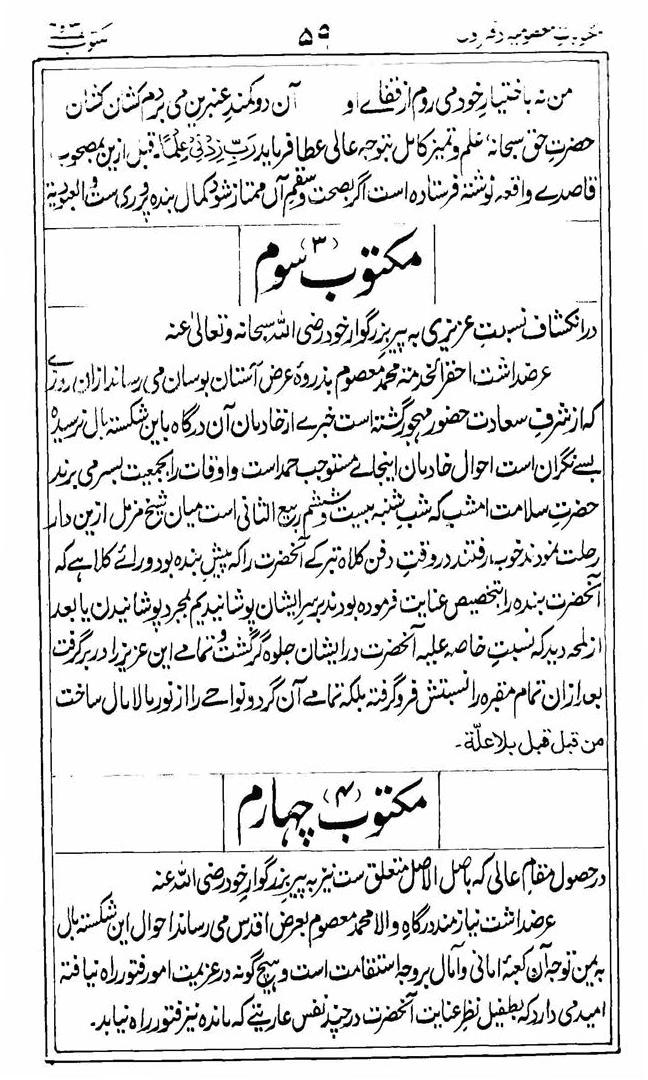 مکتوبات معصومیہ دفتر دوم ۵۹ مکتوب
من نه باختیار خود می روم از قفائے او آن دو کمند عنبرین می بردم کشان کشان
حضرت حق سبحانہ علم و تمیز کامل بتوجہ عالی عطا فرماید رَبِّ زِدْنِیْ عِلْمًا۔ قبل ازین مصحوب
قاصدے واقعہ نوشتہ فرستاده است اگر بصحت و سقم آں ممتاز شود کمال بنده پروری ست و العبودیة
مکتوب (۳) سوم
در انکشاف نسبتِ عزیزی به پیر بزرگوار خود رضی الله سبحانه وتعالیٰ عنه
عرضداشت احقر الخدمه محمد معصوم بذروهٔ عرض آستان بوسان می رساند ازان روزے
که از شرف سعادت حضور مهجور گشته است خبرے از خادمان آن درگاه باین شکسته بال نرسیده
بسے نگران است احوال خادمان اینجائے مستوجب حمد است و اوقات را بجمعیت بسر می برند
حضرت سلامت امشب که شب شنبه بیست و ششم ربیع الثانی است میان شیخ مزمل ازین دار
رحلت نمودند خوب رفتند در وقت دفن کلاه تبرکے آنحضرت را که پیش بنده بود ورائے کلاہے که
آنحضرت بنده را بتخصیص عنایت فرموده بودند بر سر ایشان پوشانیدیم بمجرد پوشانیدن یا بعد
از لمحه دید که نسبت خاصه علیه آنحضرت در ایشان جلوه گر گشت و تمامے این عزیز را در بر گرفت
بعد ازان تمام مقبره را نسبتش فرو گرفته بلکه تمامے آن گرد و نواحے را از نور مالا مال ساخت
من قبل قبل بلا علّة۔
مکتوب (۴) چہارم
در حصول مقام عالی که باصل الاصل متعلق ست نیز به پیر بزرگوار خود رضی الله عنه
عرضداشت نیازمند درگاه والا محمد معصوم بعرض اقدس می رساند احوال این شکسته بال
به یمن توجه آن کعبۂ امانی و آمال بر وجه استقامت است و ہیچ گونه در عزیمت امور فتور راه نیافته
امید می دارد که بطفیل نظر عنایت آنحضرت در چند نفس عاریتے که مانده نیز فتور راه نیابد۔